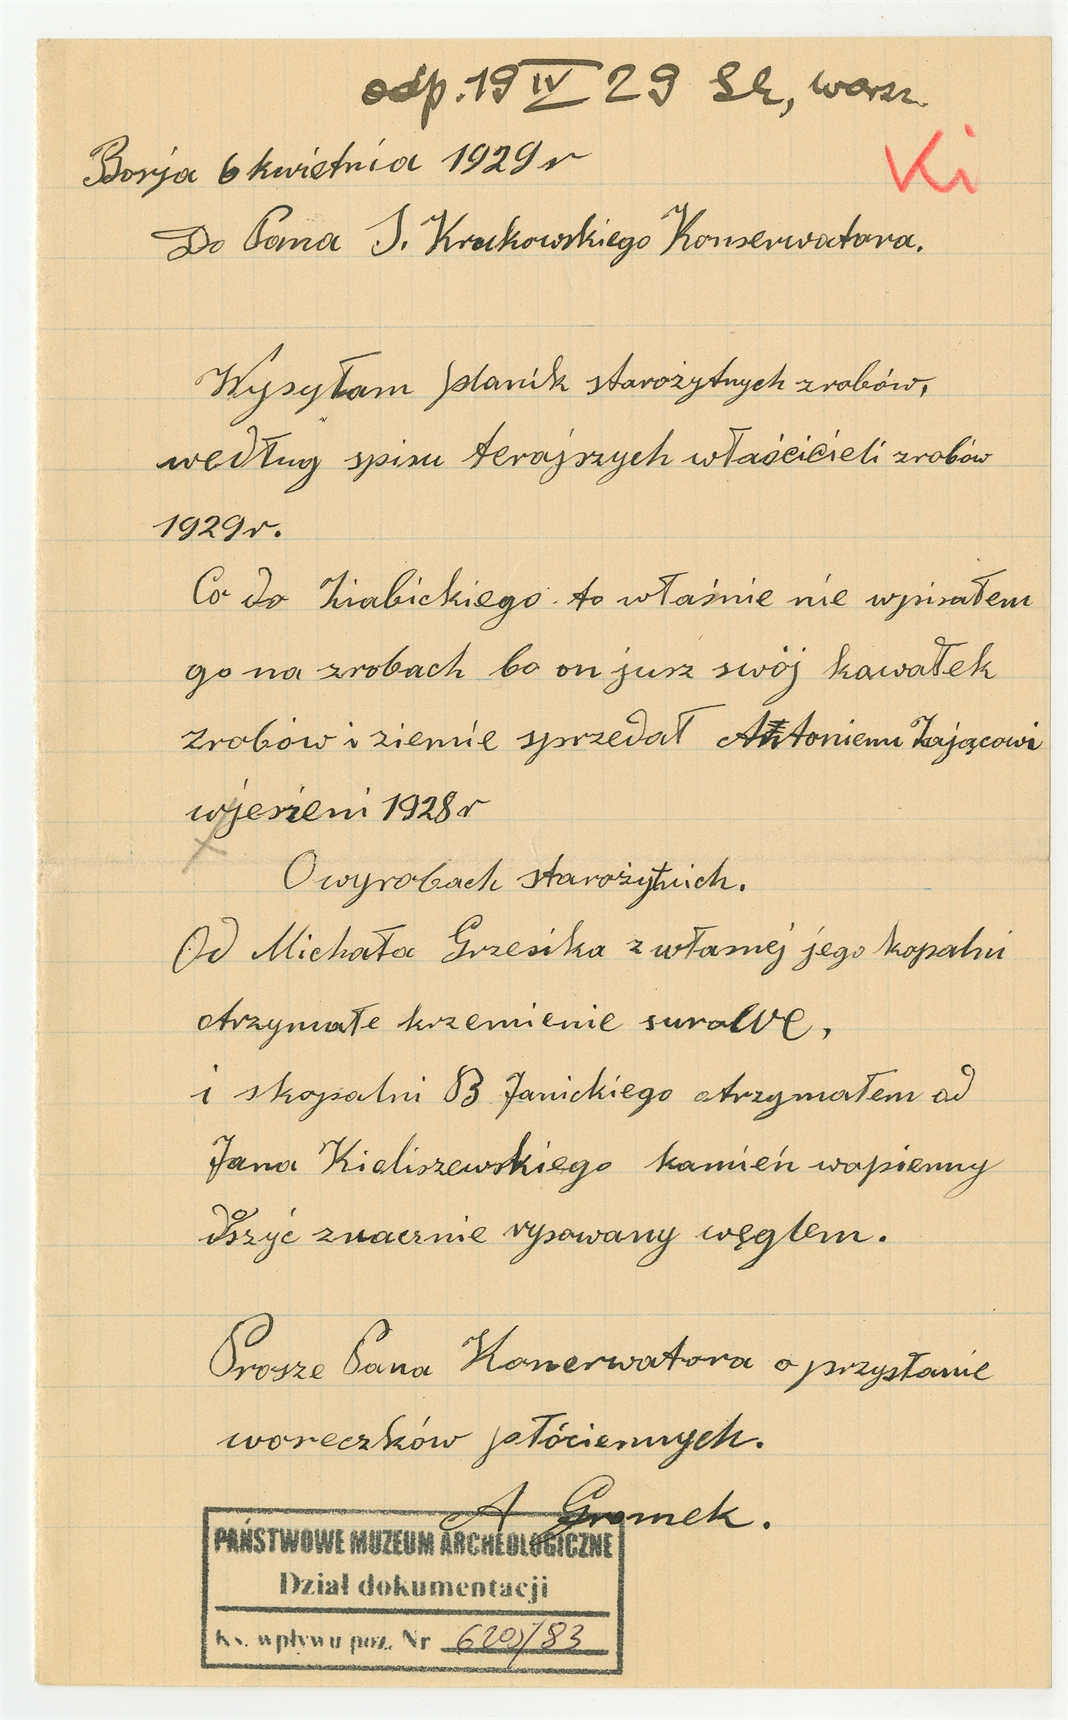 odp. 19 IV 29 Sk, warsz.
Ki
Borja 6 kwietnia 1929 r
Do Pana S. Krukowskiego Konserwatora.
Wysyłam planik starożytnych zrobów,
według spisu terajszych właścicieli zrobów
1929 r.
Co do Ziabickiego to właśnie nie wpisałem
go na zrobach bo on jusz swój kawałek
zrobów i ziemie sprzedał Antoniemu Zającowi
w jesieni 1928 r
O wyrobach starożytnich.
Od Michała Grzesika z własnej jego kopalni
otrzymałe krzemienie surowe,
i skopalni B Janickiego otrzymałem od
Jana Kieliszewskiego kamień wapienny
doszyć znacznie rysowany węglem.
Prosze Pana Konerwatora o przysłanie
woreczków płóciennych.
A Gromek.
PAŃSTWOWE MUZEUM ARCHEOLOGICZNE
Dział dokumentacji
Ks. wpływu poz. Nr 620)/83